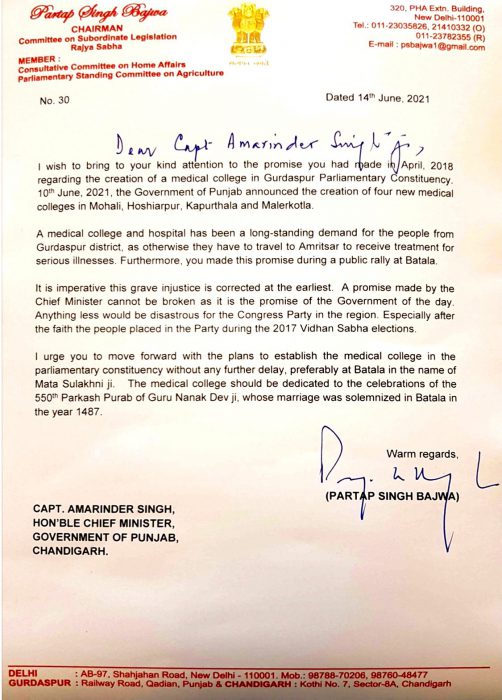 Partap Singh Bajwa
CHAIRMAN
Committee on Subordinate Legislation
Rajya Sabha
MEMBER :
Consultative Committee on Home Affairs
Parliamentary Standing Committee on Agriculture
320, PHA Extn. Building,
New Delhi-110001
Tel.: 011-23035826, 21410332 (O)
011-23782355 (R)
E-mail : psbajwa1@gmail.com
No. 30
Dated 14th June, 2021
Dear Capt Amarinder Singh ji,
I wish to bring to your kind attention to the promise you had made in April, 2018
regarding the creation of a medical college in Gurdaspur Parliamentary Constituency.
10th June, 2021, the Government of Punjab announced the creation of four new medical
colleges in Mohali, Hoshiarpur, Kapurthala and Malerkotla.
A medical college and hospital has been a long-standing demand for the people from
Gurdaspur district, as otherwise they have to travel to Amritsar to receive treatment for
serious illnesses. Furthermore, you made this promise during a public rally at Batala.
It is imperative this grave injustice is corrected at the earliest. A promise made by the
Chief Minister cannot be broken as it is the promise of the Government of the day.
Anything less would be disastrous for the Congress Party in the region. Especially after
the faith the people placed in the Party during the 2017 Vidhan Sabha elections.
I urge you to move forward with the plans to establish the medical college in the
parliamentary constituency without any further delay, preferably at Batala in the name of
Mata Sulakhni ji. The medical college should be dedicated to the celebrations of the
550th Parkash Purab of Guru Nanak Dev ji, whose marriage was solemnized in Batala in
the year 1487.
Warm regards,
(PARTAP SINGH BAJWA)
CAPT. AMARINDER SINGH,
HON'BLE CHIEF MINISTER,
GOVERNMENT OF PUNJAB,
CHANDIGARH.
DELHI : AB-97, Shahjahan Road, New Delhi - 110001. Mob.: 98788-70206, 98760-48477
GURDASPUR : Railway Road, Qadian, Punjab & CHANDIGARH : Kothi No. 7, Sector-8A, Chandigarh